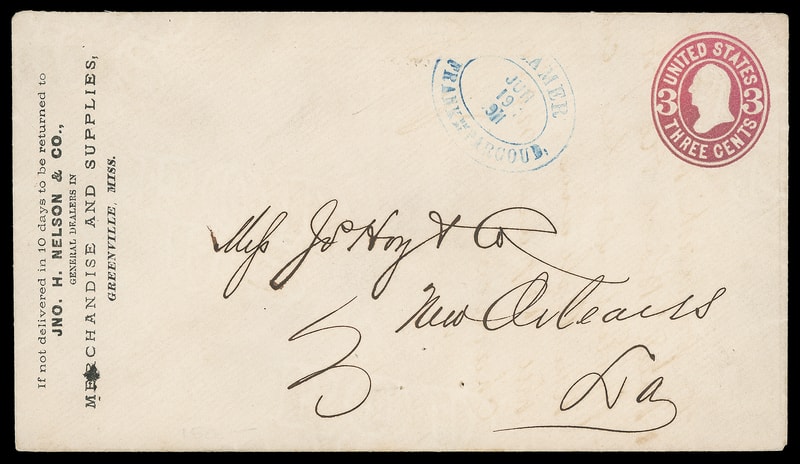 If not delivered in 10 days to be returned to
JNO. H. NELSON & CO.,
GENERAL DEALERS IN
MERCHANDISE AND SUPPLIES,
GREENVILLE, MISS.
FRANK PARGOUD,
JUN
19
UNITED STATES
3 3
THREE CENTS
Mess Jos Hoy & Co
New Orleans
La